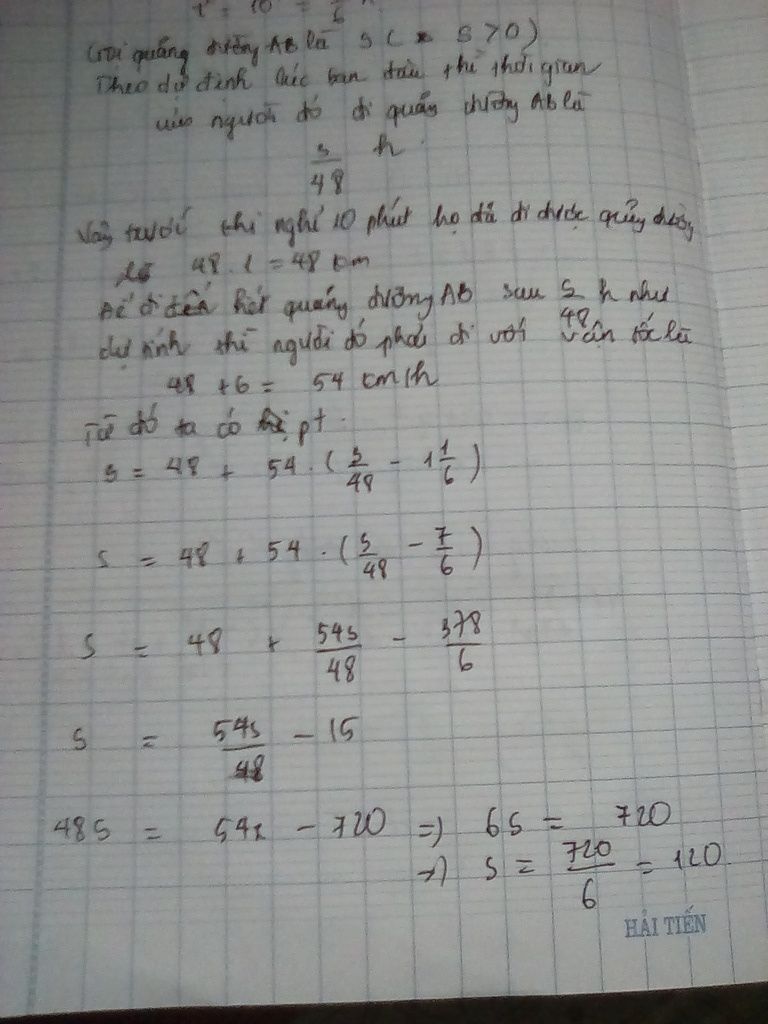 t = 10' = 1/6 h
Gọi quãng đường AB là s ( s > 0)
Theo dự định lúc ban đầu thì thời gian
của người đó đi quãng đường AB là
s/48 h
Vậy trước khi nghỉ 10 phút họ đã đi được quãng đường
là 48 . 1 = 48 km
Để đi đến hết quãng đường AB sau s/48 h như
dự tính thì người đó phải đi với vận tốc là
48 + 6 = 54 km/h
Từ đó ta có pt
s = 48 + 54 . ( s/48 - 1 1/6 )
s = 48 + 54 . ( s/48 - 7/6 )
s = 48 + 54s/48 - 378/6
s = 54s/48 - 15
48s = 54s - 720 => 6s = 720
=> s = 720/6 = 120
HẢI TIẾN